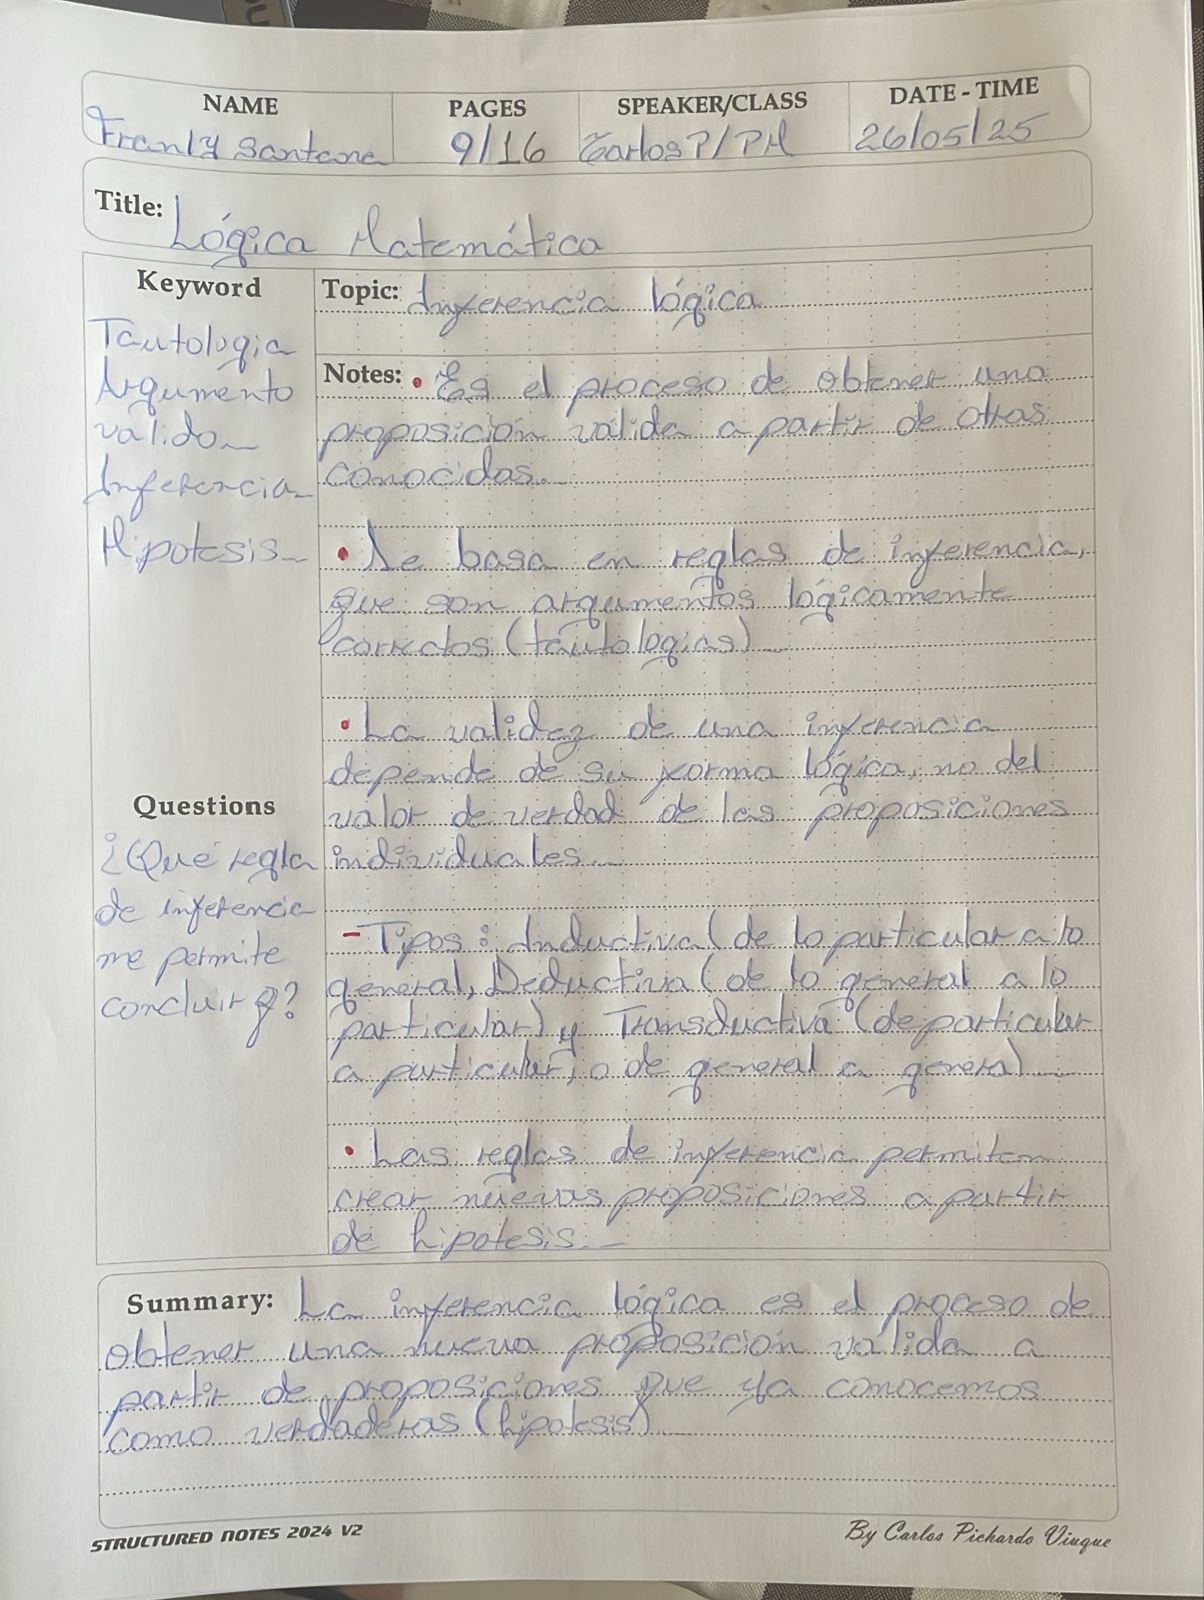 NAME PAGES SPEAKER/CLASS DATE - TIME
Franly Santana 9/16 Carlos P/PM 26/05/25
Title: Lógica Matemática
Keyword
Tautologia
Argumento
valido
Inferencia
Hipotesis
Questions
¿Qué regla
de inferencia
me permite
concluir q?
Topic: Inferencia lógica
Notes: • Es el proceso de obtener una
proposición valida a partir de otras
conocidas.
• Se basa en reglas de inferencia,
que son argumentos lógicamente
correctos (tautologias)
• La validez de una inferencia
depende de su forma lógica, no del
valor de verdad de las proposiciones
individuales.
- Tipos: Inductiva (de lo particular a lo
general, Deductiva (de lo general a lo
particular) y Transductiva (de particular
a particular, o de general a general)
• Las reglas de inferencia permiten
crear nuevas proposiciones a partir
de hipotesis.
Summary: La inferencia lógica es el proceso de
obtener una nueva proposición válida a
partir de proposiciones que ya conocemos
como verdaderas (hipotesis)
STRUCTURED NOTES 2024 V2 By Carlos Pichardo Viuque